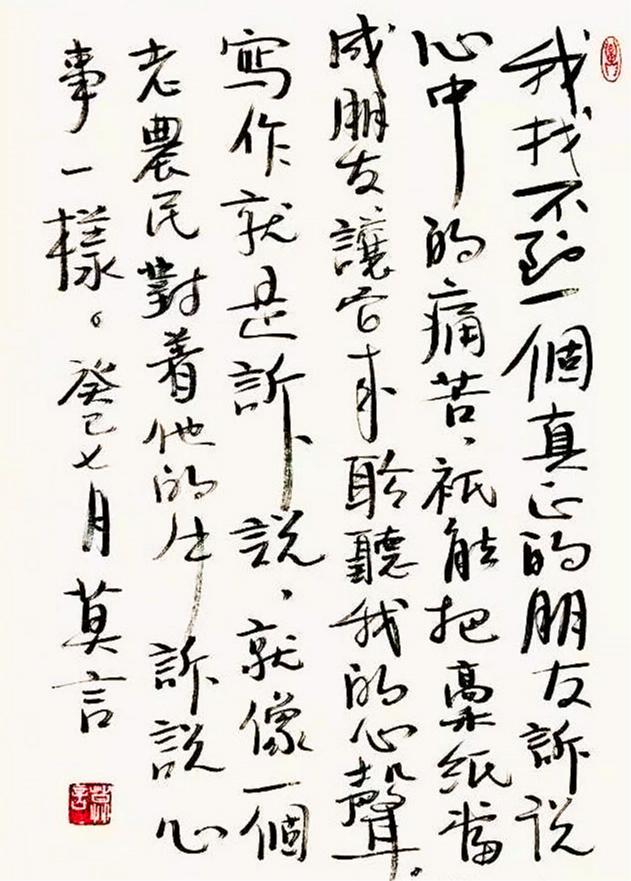 我找不到一個真正的朋友訴说
心中的痛苦、祇能把稾紙當
成朋友讓它来聆聽我的心聲。
寫作就是訴說、就像一個
老農民對着他的牛訴説心
事一樣。癸巳七月莫言
莫言